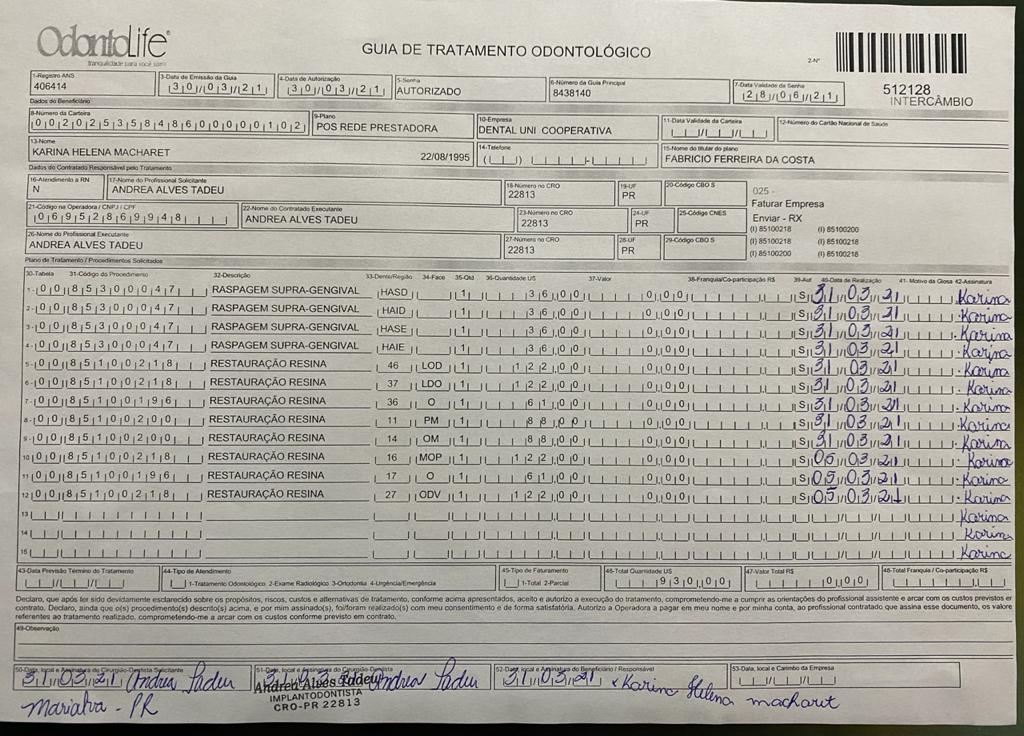 OdontoLife
tranquilidade para você sorrir
GUIA DE TRATAMENTO ODONTOLÓGICO
2-Nº
512128
INTERCÂMBIO
1-Registro ANS 3-Data de Emissão da Guia 4-Data de Autorização 5-Senha 6-Número da Guia Principal 7-Data Validade da Senha
406414 30/03/21 30/03/21 AUTORIZADO 8438140 28/06/21
Dados do Beneficiário
8-Número da Carteira 9-Plano 10-Empresa 11-Data Validade da Carteira 12-Número do Cartão Nacional de Saúde
00202535848600000102 POS REDE PRESTADORA DENTAL UNI COOPERATIVA
13-Nome 14-Telefone 15-Nome do titular do plano
KARINA HELENA MACHARET 22/08/1995 FABRICIO FERREIRA DA COSTA
Dados do Contratado Responsável pelo Tratamento
16-Atendimento a RN 17-Nome do Profissional Solicitante 18-Número no CRO 19-UF 20-Código CBO S
N ANDREA ALVES TADEU 22813 PR
025 -
Faturar Empresa
Enviar - RX
(I) 85100218 (I) 85100200
(I) 85100218 (I) 85100218
(I) 85100200 (I) 85100218
21-Código na Operadora / CNPJ / CPF 22-Nome do Contratado Executante 23-Número no CRO 24-UF 25-Código CNES
06952869948 ANDREA ALVES TADEU 22813 PR
26-Nome do Profissional Executante 27-Número no CRO 28-UF 29-Código CBO S
ANDREA ALVES TADEU 22813 PR
Plano de Tratamento / Procedimentos Solicitados
30-Tabela 31-Código do Procedimento 32-Descrição 33-Dente/Região 34-Face 35-Qtd 36-Quantidade US 37-Valor 38-Franquia/Co-participação R$ 39-Aut 40-Data de Realização 41- Motivo da Glosa 42-Assinatura
1- 00 85300047 RASPAGEM SUPRA-GENGIVAL HASD 1 36,00 0,00 S 31/03/21 Karina
2- 00 85300047 RASPAGEM SUPRA-GENGIVAL HAID 1 36,00 0,00 S 31/03/21 Karina
3- 00 85300047 RASPAGEM SUPRA-GENGIVAL HASE 1 36,00 0,00 S 31/03/21 Karina
4- 00 85300047 RASPAGEM SUPRA-GENGIVAL HAIE 1 36,00 0,00 S 31/03/21 Karina
5- 00 85100218 RESTAURAÇÃO RESINA 46 LOD 1 122,00 0,00 S 31/03/21 Karina
6- 00 85100218 RESTAURAÇÃO RESINA 37 LDO 1 122,00 0,00 S 31/03/21 Karina
7- 00 85100196 RESTAURAÇÃO RESINA 36 O 1 61,00 0,00 S 31/03/21 Karina
8- 00 85100200 RESTAURAÇÃO RESINA 11 PM 1 88,00 0,00 S 31/03/21 Karina
9- 00 85100200 RESTAURAÇÃO RESINA 14 OM 1 88,00 0,00 S 31/03/21 Karina
10 00 85100218 RESTAURAÇÃO RESINA 16 MOP 1 122,00 0,00 S 05/03/21 Karina
11 00 85100196 RESTAURAÇÃO RESINA 17 O 1 61,00 0,00 S 05/03/21 Karina
12 00 85100218 RESTAURAÇÃO RESINA 27 ODV 1 122,00 0,00 S 05/03/21 Karina
13 Karina
14 Karina
15 Karina
43-Data Previsão Término do Tratamento 44-Tipo de Atendimento 45-Tipo de Faturamento 46-Total Quantidade US 47-Valor Total R$ 48-Total Franquia / Co-participação R$
1-Tratamento Odontológico 2-Exame Radiológico 3-Ortodontia 4-Urgência/Emergência 1-Total 2-Parcial 930,00 0,00
Declaro, que após ter sido devidamente esclarecido sobre os propósitos, riscos, custos e alternativas de tratamento, conforme acima apresentados, aceito e autorizo a execução do tratamento, comprometendo-me a cumprir as orientações do profissional assistente e arcar com os custos previstos em
contrato. Declaro, ainda que o(s) procedimento(s) descrito(s) acima, e por mim assinado(s), foi/foram realizado(s) com meu consentimento e de forma satisfatória. Autorizo a Operadora a pagar em meu nome e por minha conta, ao profissional contratado que assina esse documento, os valores
referentes ao tratamento realizado, comprometendo-me a arcar com os custos conforme previsto em contrato.
49-Observação
50-Data, local e Assinatura do Cirurgião-Dentista Solicitante 51-Data, local e Assinatura do Cirurgião-Dentista 52-Data, local e Assinatura do Beneficiário / Responsável 53-Data, local e Carimbo da Empresa
31/03/21 Andrea Tadeu Andrea Tadeu 31/03/21 x Karina Helena macharet
Marialva - PR
Andrea Alves Tadeu
IMPLANTODONTISTA
CRO-PR 22813